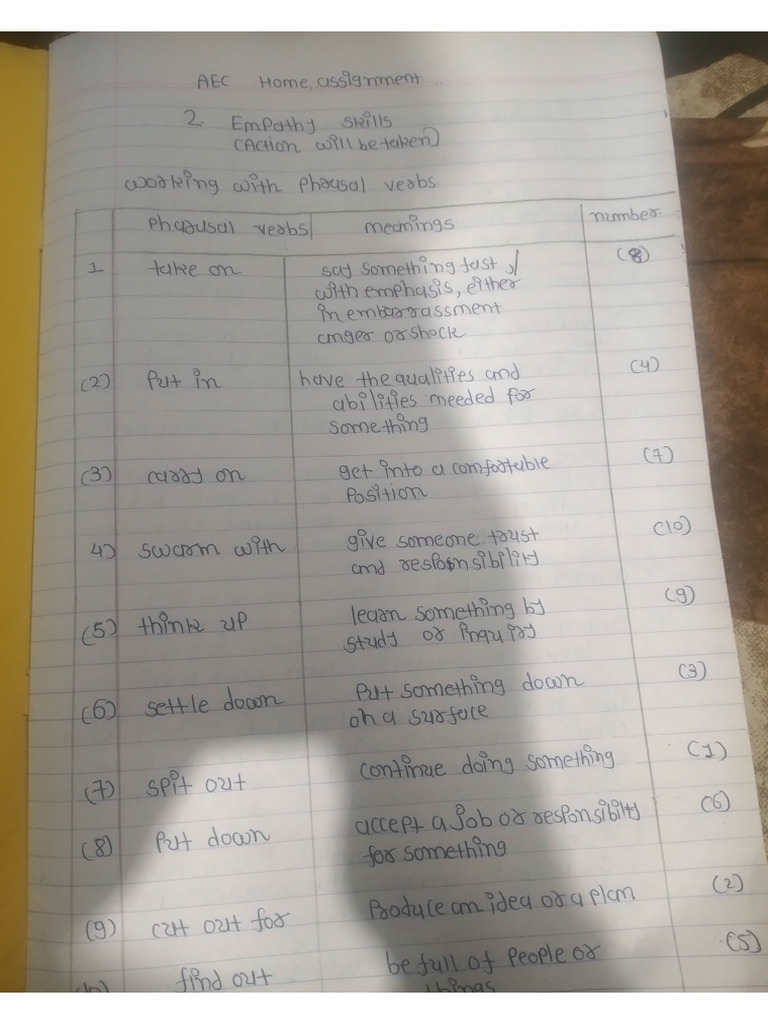 AEC Home assignment
2. Empathy skills
(Action will be taken)
working with phrausal verbs.
Pharusal verbs meanings number
1 take on say something fast, (8)
with emphasis, either
in embarrassment
anger or shock
(2) Put in have the qualities and (4)
abilities needed for
something
(3) carry on get into a comfortable (7)
Position
4) swarm with give someone trust (10)
and responsibility
(5) think up learn something by (9)
study or inquiry
(6) settle down Put something down (3)
on a surface
(7) spit out continue doing something (1)
(8) Put down accept a job or responsibility (6)
for something
(9) cut out for Produce an idea or a plan (2)
find out be full of people or (5)
things